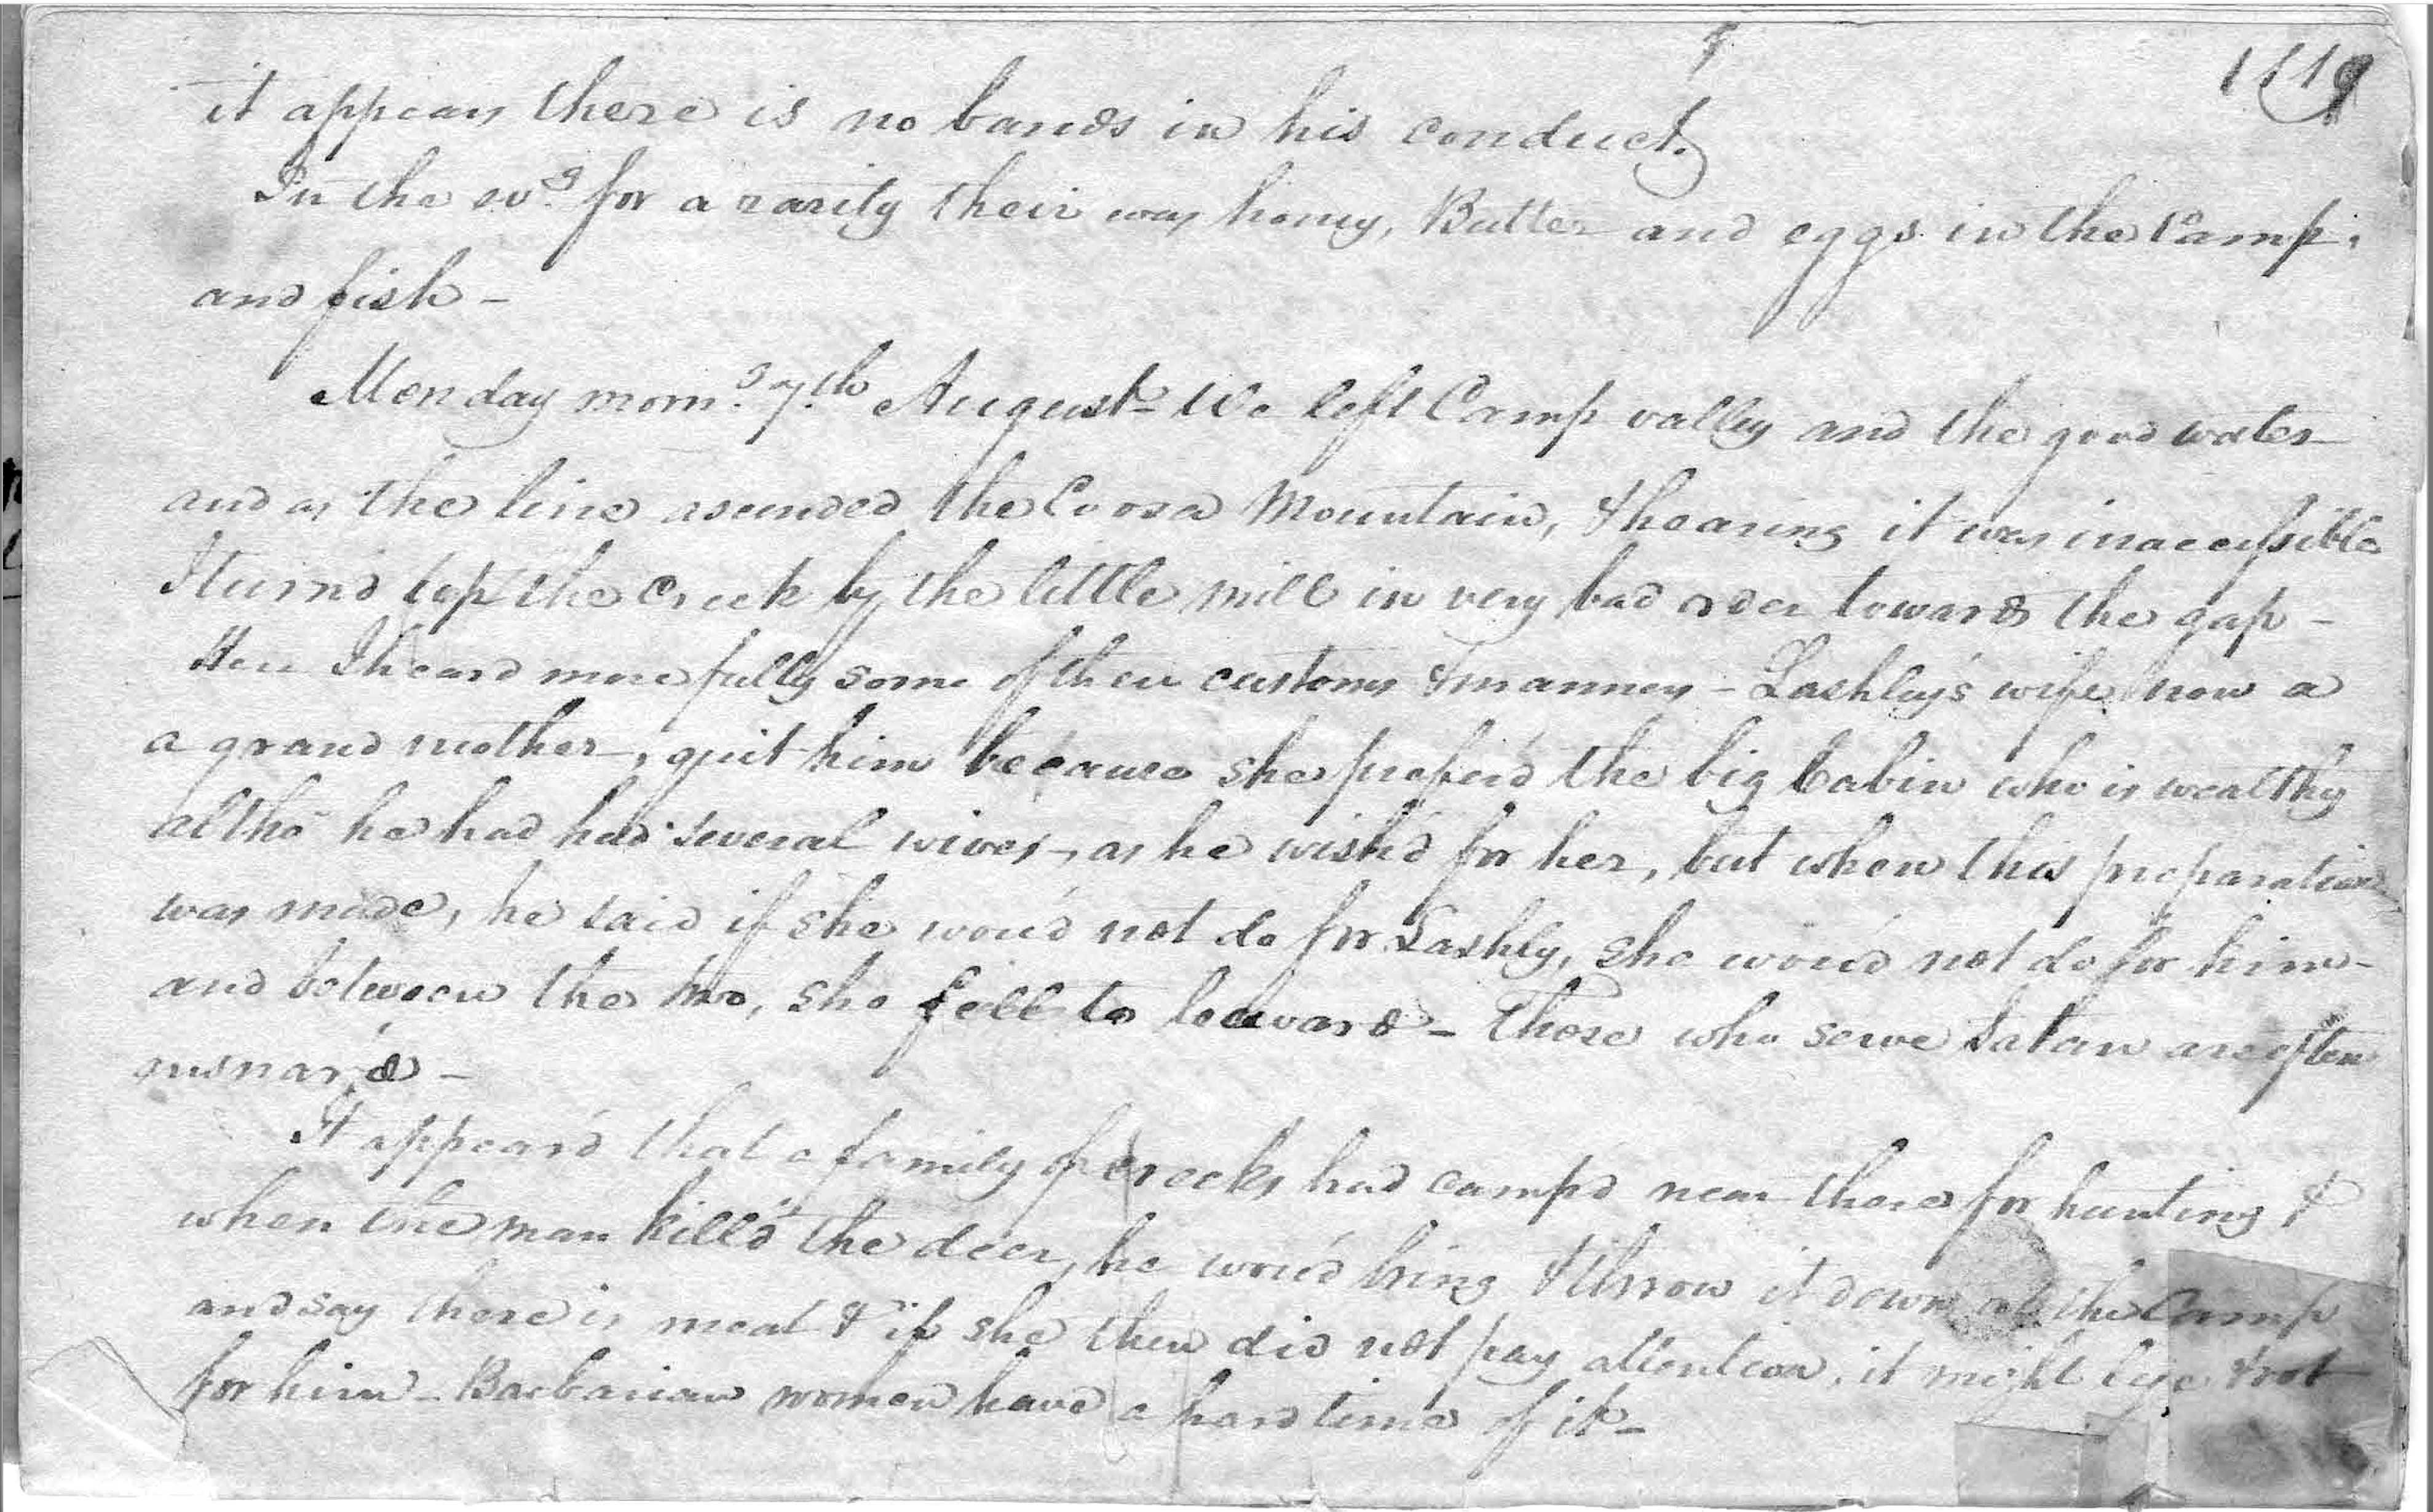 119
it appears there is no bands in his conduct.
In the evg. for a rarity their was honey, Butter and eggs in the Camp,
and fish -
Monday morng. 7th. August - We left Camp valley and the good water
and as the line ascended the Coosa Mountain, & hearing it was inaccessible
I turn'd up the Creek by the little mill in very bad order towards the gap -
Here I heard more fully some of their customs & manners - Lashley's wife now a
a grand mother, quit him because she prefer'd the big Cabin who is wealthy
altho he had had several wives, as he wish'd for her, but when this preparation
was made, he said if she wou'd not do for Lashly, she wou'd not do for him -
and between the two, she fell to leeward - Those who serve Satan are often
ensnar'd -
It appear'd that a family of Creeks had camp'd near there for hunting &
when the man kill'd the deer, he wou'd bring & throw it down at the Camp
and say there is meat & if she then did not pay attention, it might lye & rot
for him - Barbarian women have a hard time of it -